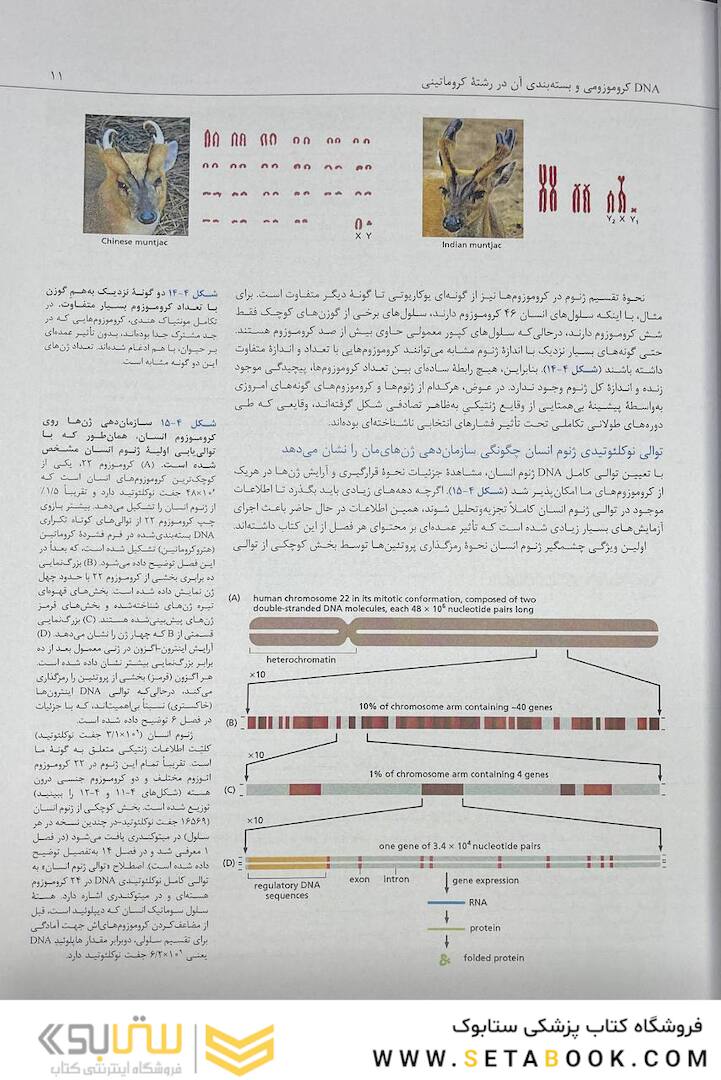 DNA کروموزومی و بسته‌بندی آن در رشتهٔ کروماتینی
۱۱
Chinese muntjac
X Y
Indian muntjac
Y₂ X Y₁
شکل ۴-۱۴ دو گونهٔ نزدیک به‌هم گوزن
با تعداد کروموزوم بسیار متفاوت. در
تکامل مونتیاک هندی، کروموزوم‌هایی که در
جد مشترک جدا بوده‌اند، بدون تأثیر عمده‌ای
بر حیوان، با هم ادغام شده‌اند. تعداد ژن‌های
این دو گونه مشابه است.
نحوهٔ تقسیم ژنوم در کروموزوم‌ها نیز از گونه‌ای یوکاریوتی تا گونهٔ دیگر متفاوت است. برای
مثال، با اینکه سلول‌های انسان ۴۶ کروموزوم دارند، سلول‌های برخی از گوزن‌های کوچک فقط
شش کروموزوم دارند، درحالی‌که سلول‌های کپور معمولی حاوی بیش از صد کروموزوم هستند.
حتی گونه‌های بسیار نزدیک با اندازهٔ ژنوم مشابه می‌توانند کروموزوم‌هایی با تعداد و اندازهٔ متفاوت
داشته باشند (شکل ۴-۱۴). بنابراین، هیچ رابطهٔ ساده‌ای بین تعداد کروموزوم‌ها، پیچیدگی موجود
زنده و اندازهٔ کل ژنوم وجود ندارد. در عوض، هرکدام از ژنوم‌ها و کروموزوم‌های گونه‌های امروزی
به‌واسطهٔ پیشینهٔ بی‌همتایی از وقایع ژنتیکی به‌ظاهر تصادفی شکل گرفته‌اند، وقایعی که طی
دوره‌های طولانی تکاملی تحت تأثیر فشارهای انتخابی ناشناخته‌ای بوده‌اند.
توالی نوکلئوتیدی ژنوم انسان چگونگی سازمان‌دهی ژن‌های‌مان را نشان می‌دهد
با تعیین توالی کامل DNA ژنوم انسان، مشاهدهٔ جزئیات نحوهٔ قرارگیری و آرایش ژن‌ها در هریک
از کروموزوم‌های ما امکان‌پذیر شد (شکل ۴-۱۵). اگرچه دهه‌های زیادی باید بگذرد تا اطلاعات
موجود در توالی ژنوم انسان کاملاً تجزیه‌وتحلیل شوند، همین اطلاعات در حال حاضر باعث اجرای
آزمایش‌های بسیار زیادی شده است که تأثیر عمده‌ای بر محتوای هر فصل از این کتاب داشته‌اند.
اولین ویژگی چشمگیر ژنوم انسان نحوهٔ رمزگذاری پروتئین‌ها توسط بخش کوچکی از توالی
شکل ۴-۱۵ سازمان‌دهی ژن‌ها روی
کروموزوم انسان، همان‌طور که با
توالی‌یابی اولیهٔ ژنوم انسان مشخص
شده است. (A) کروموزوم ۲۲، یکی از
کوچک‌ترین کروموزوم‌های انسان است که
۴۸×۱۰⁶ جفت نوکلئوتید دارد و تقریباً ۱/۵٪
از ژنوم انسان را تشکیل می‌دهد. بیشتر بازوی
چپ کروموزوم ۲۲ از توالی‌های کوتاه تکراری
DNA بسته‌بندی‌شده در فرم فشردهٔ کروماتین
(هتروکروماتین) تشکیل شده است، که بعداً در
این فصل توضیح داده می‌شود. (B) بزرگ‌نمایی
ده برابری بخشی از کروموزوم ۲۲ با حدود چهل
ژن نمایش داده شده است. بخش‌های قهوه‌ای
تیره ژن‌های شناخته‌شده و بخش‌های قرمز
ژن‌های پیش‌بینی‌شده هستند. (C) بزرگ‌نمایی
قسمتی از B که چهار ژن را نشان می‌دهد. (D)
آرایش اینترون-اگزون در ژنی معمول بعد از ده
برابر بزرگ‌نمایی بیشتر نشان داده شده است.
هر اگزون (قرمز) بخشی از پروتئین را رمزگذاری
می‌کند، درحالی‌که توالی DNA اینترون‌ها
(خاکستری) نسبتاً بی‌اهمیت‌اند، که با جزئیات
در فصل ۶ توضیح داده شده است.
ژنوم انسان (۳/۱×۱۰⁹ جفت نوکلئوتید)
کلیّت اطلاعات ژنتیکی متعلق به گونهٔ ما
است. تقریباً تمام این ژنوم در ۲۲ کروموزوم
اتوزوم مختلف و دو کروموزوم جنسی درون
هسته (شکل‌های ۴-۱۱ و ۴-۱۲ را ببینید)
توزیع شده است. بخش کوچکی از ژنوم انسان
(۱۶۵۶۹ جفت نوکلئوتید-در چندین نسخه در هر
سلول) در میتوکندری یافت می‌شود (در فصل
۱ معرفی شد و در فصل ۱۴ به‌تفصیل توضیح
داده شده است). اصطلاح «توالی ژنوم انسان» به
توالی کامل نوکلئوتیدی DNA در ۲۴ کروموزوم
هسته‌ای و در میتوکندری اشاره دارد. هستهٔ
سلول سوماتیک انسان که دیپلوئید است، قبل
از مضاعف‌کردن کروموزوم‌های‌اش جهت آمادگی
برای تقسیم سلولی، دوبرابر مقدار هاپلوئید DNA
یعنی ۶/۲×۱۰⁹ جفت نوکلئوتید دارد.
(A) human chromosome 22 in its mitotic conformation, composed of two
double-stranded DNA molecules, each 48 × 10⁶ nucleotide pairs long
heterochromatin
×10
10% of chromosome arm containing ~40 genes
(B)
×10
1% of chromosome arm containing 4 genes
(C)
×10
one gene of 3.4 × 10⁴ nucleotide pairs
(D)
regulatory DNA
sequences
exon intron gene expression
RNA
protein
folded protein
ستابوک
فروشگاه اینترنتی کتاب
فروشگاه کتاب پزشکی ستابوک
WWW.SETABOOK.COM